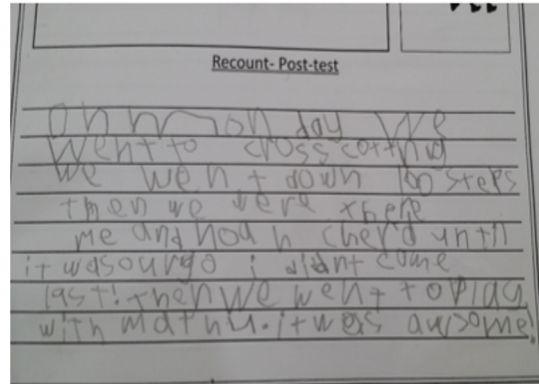 Recount- Post-test
On mon day We
Went to cross cottng
We went down 100 steps
then we were there
me and Noah cherd until
it was ourgo i didnt come
last! then We went to play
with mathu. it was awsome!